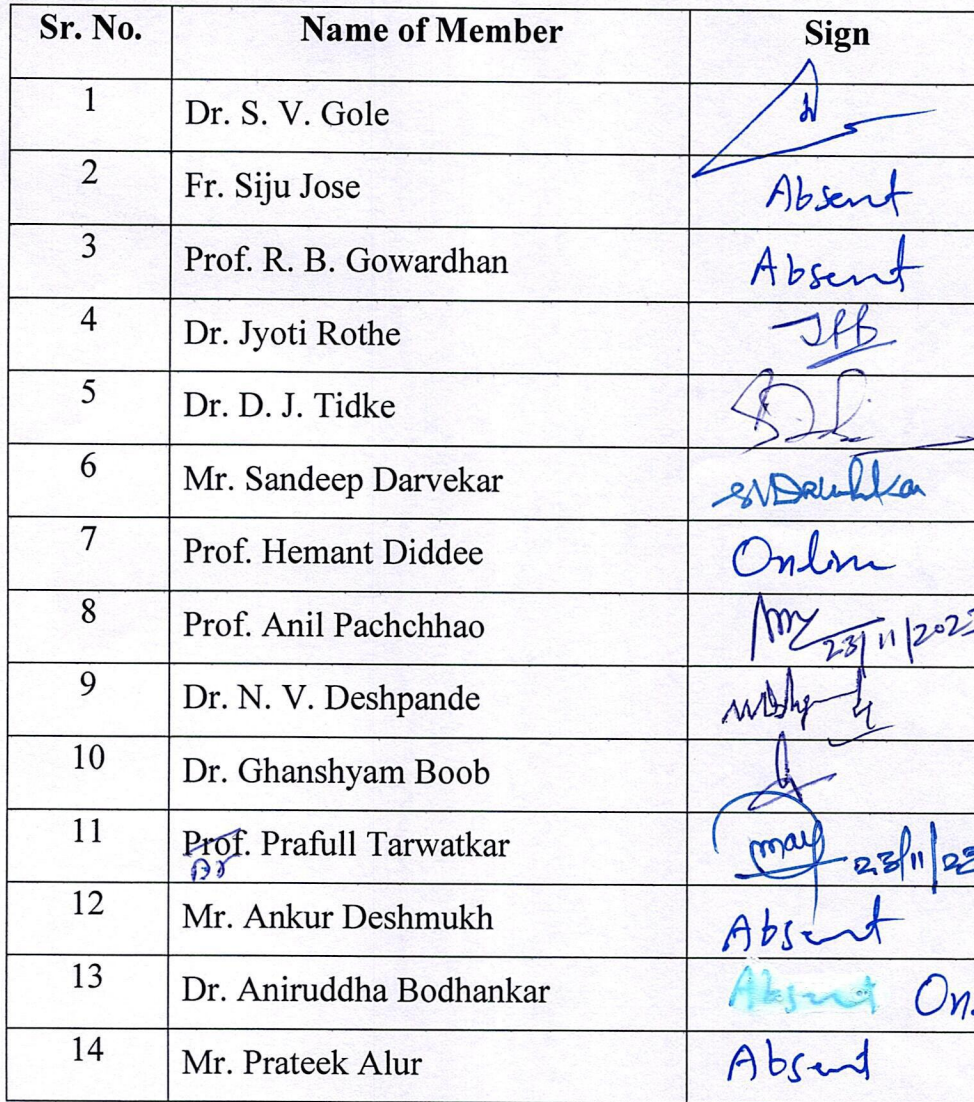 Sr. No. Name of Member Sign
1 Dr. S. V. Gole
2 Fr. Siju Jose Absent
3 Prof. R. B. Gowardhan Absent
4 Dr. Jyoti Rothe
5 Dr. D. J. Tidke
6 Mr. Sandeep Darvekar
7 Prof. Hemant Diddee Online
8 Prof. Anil Pachchhao 23/11/2023
9 Dr. N. V. Deshpande
10 Dr. Ghanshyam Boob
11 Prof. Prafull Tarwatkar 23/11/23
Dr
12 Mr. Ankur Deshmukh Absent
13 Dr. Aniruddha Bodhankar Absent On
14 Mr. Prateek Alur Absent